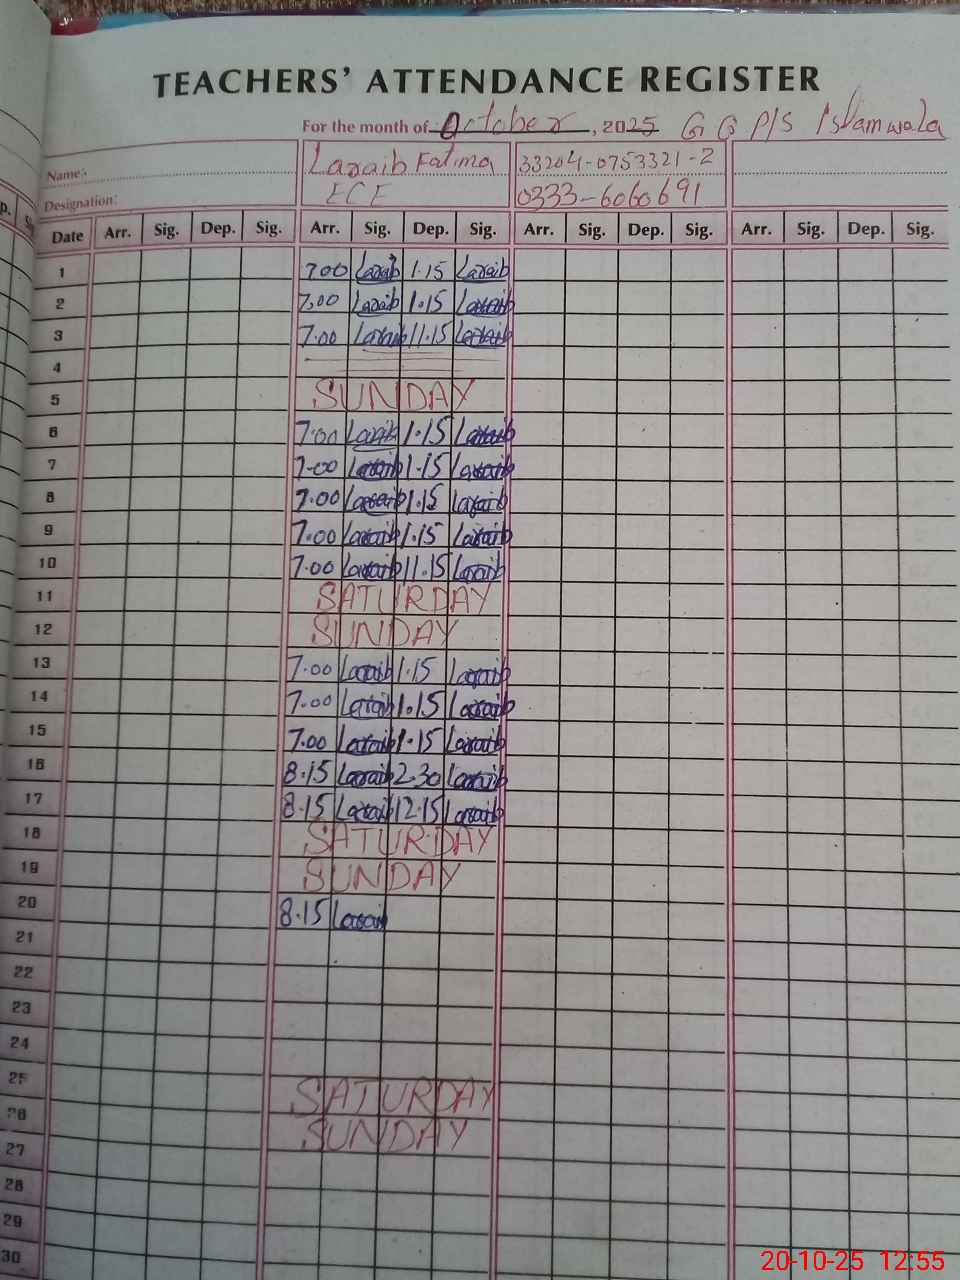 TEACHERS' ATTENDANCE REGISTER
For the month of October, 2025 G G P/S Islamwala
Name: Laraib Fatima 33204-0753321-2
Designation: ECE 0333-6060691
Date Arr. Sig. Dep. Sig. Arr. Sig. Dep. Sig. Arr. Sig. Dep. Sig. Arr. Sig. Dep. Sig.
1 7.00 Laraib 1.15 Laraib
2 7.00 Laraib 1.15 Laraib
3 7.00 Laraib 11.15 Laraib
4
5 SUNDAY
6 7.00 Laraib 1.15 Laraib
7 7-00 Laraib 1.15 Laraib
8 7.00 Laraib 1.15 Laraib
9 7.00 Laraib 1.15 Laraib
10 7.00 Laraib 11.15 Laraib
11 SATURDAY
12 SUNDAY
13 7.00 Laraib 1.15 Laraib
14 7.00 Laraib 1.15 Laraib
15 7.00 Laraib 1.15 Laraib
16 8.15 Laraib 2.30 Laraib
17 8.15 Laraib 12.15 Laraib
18 SATURDAY
19 SUNDAY
20 8.15 Laraib
21
22
23
24
25 SATURDAY
26 SUNDAY
27
28
29
30
20-10-25 12:55